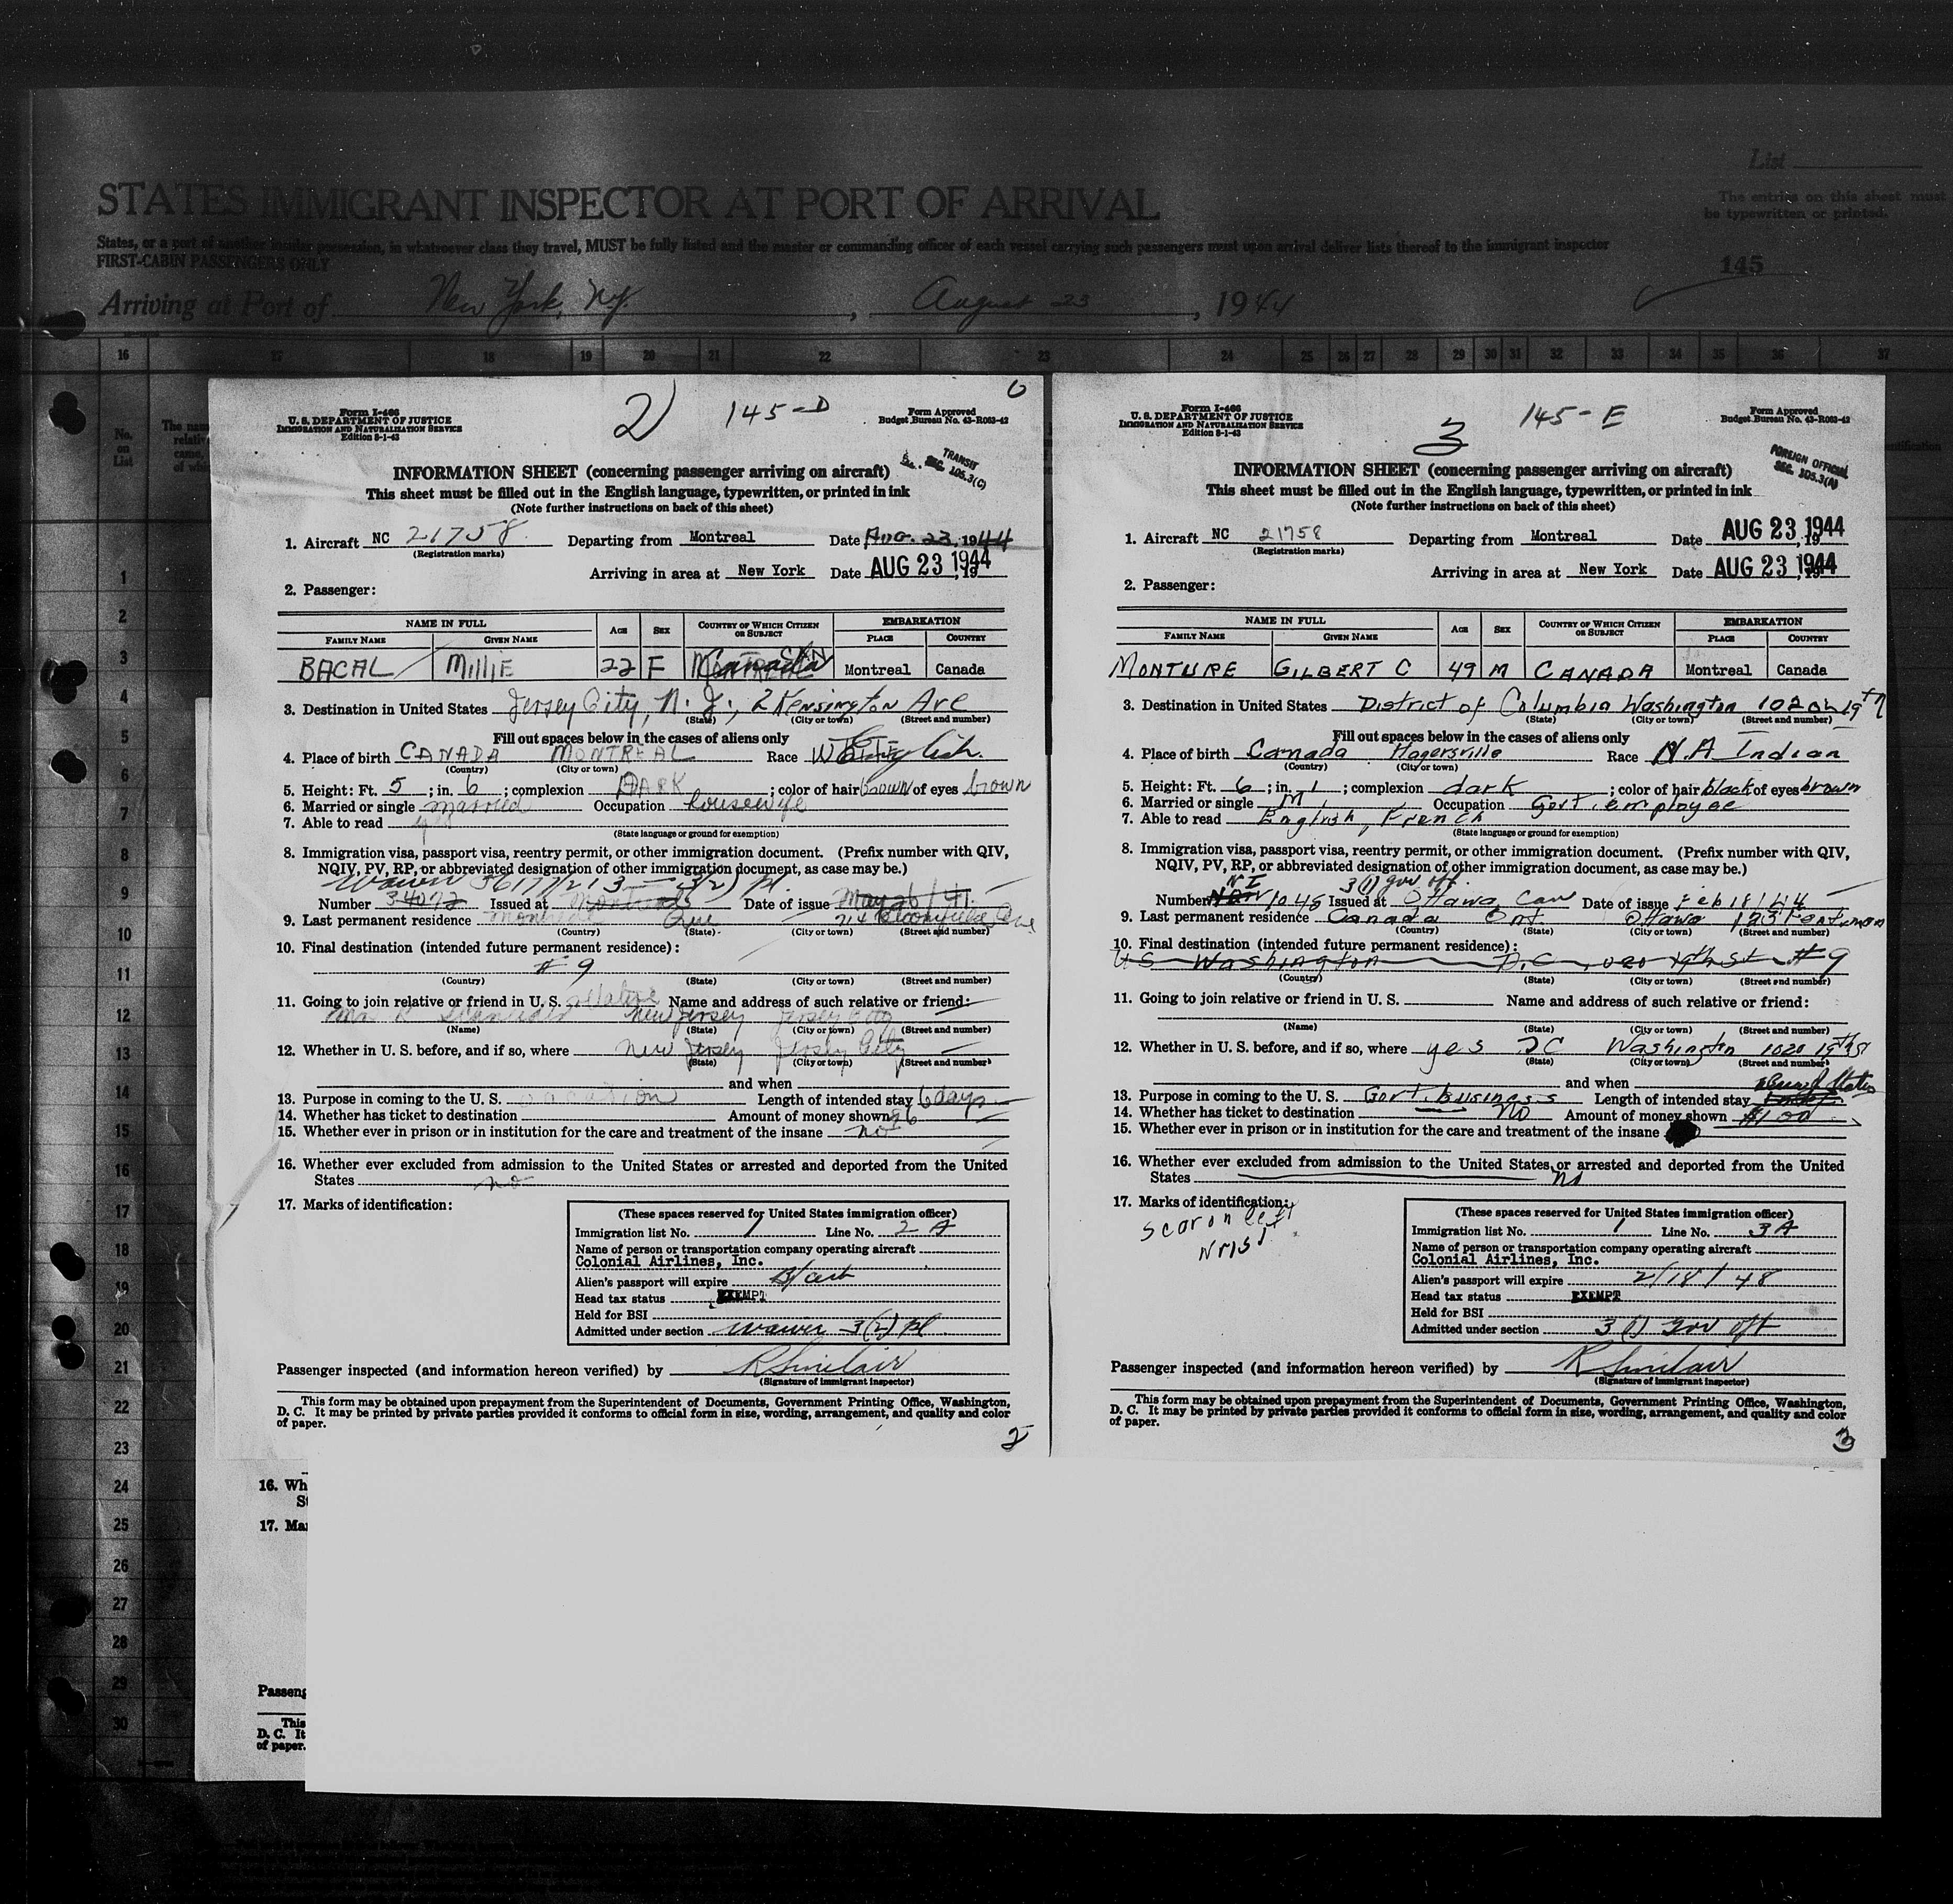 List
The entries on this sheet must
be typewritten or printed.
STATES IMMIGRANT INSPECTOR AT PORT OF ARRIVAL
States, or a port of another insular possession, in whatsoever class they travel, MUST be fully listed and the master or commanding officer of each vessel carrying such passengers must upon arrival deliver lists thereof to the immigrant inspector
FIRST-CABIN PASSENGERS ONLY
145
Arriving at Port of New York, N.Y., August 23, 1944
16 17 18 19 20 21 22 23 24 25 26 27 28 29 30 31 32 33 34 35 36 37
No. on List
1
2
3
4
5
6
7
8
9
10
11
12
13
14
15
16
17
18
19
20
21
22
23
24
25
26
27
28
29
30
Form I-466
U. S. DEPARTMENT OF JUSTICE
IMMIGRATION AND NATURALIZATION SERVICE
Edition 8-1-43
2
145-D
Form Approved
Budget Bureau No. 43-R063-42
TRANSIT
SEC. 105.3(C)
INFORMATION SHEET (concerning passenger arriving on aircraft)
This sheet must be filled out in the English language, typewritten, or printed in ink
(Note further instructions on back of this sheet)
1. Aircraft NC 21758 Departing from Montreal Date Aug. 23, 1944
(Registration marks)
Arriving in area at New York Date AUG 23 1944
2. Passenger:
NAME IN FULL AGE SEX COUNTRY OF WHICH CITIZEN OR SUBJECT EMBARKATION
FAMILY NAME GIVEN NAME PLACE COUNTRY
BACAL MILLIE 22 F Canada Montreal Canada
3. Destination in United States Jersey City, N. J., 2 Kensington Ave
(State) (City or town) (Street and number)
Fill out spaces below in the cases of aliens only
4. Place of birth CANADA MONTREAL Race English
(Country) (City or town)
5. Height: Ft. 5; in. 6; complexion DARK; color of hair brown of eyes brown
6. Married or single married Occupation housewife
7. Able to read yes
(State language or ground for exemption)
8. Immigration visa, passport visa, reentry permit, or other immigration document. (Prefix number with QIV,
NQIV, PV, RP, or abbreviated designation of other immigration document, as case may be.)
Number 34072 Issued at Montreal Date of issue May 26/41
9. Last permanent residence Montreal Que 214 Bloomfield Ave
(Country) (State) (City or town) (Street and number)
10. Final destination (intended future permanent residence):
#9
(Country) (State) (City or town) (Street and number)
11. Going to join relative or friend in U. S. relative Name and address of such relative or friend:
New Jersey Jersey City
(Name) (State) (City or town) (Street and number)
12. Whether in U. S. before, and if so, where New Jersey Jersey City
(State) (City or town) (Street and number)
and when
13. Purpose in coming to the U. S. vacation Length of intended stay 6 days
14. Whether has ticket to destination Amount of money shown
15. Whether ever in prison or in institution for the care and treatment of the insane no
16. Whether ever excluded from admission to the United States or arrested and deported from the United
States no
17. Marks of identification:
(These spaces reserved for United States immigration officer)
Immigration list No. 1 Line No. 2 A
Name of person or transportation company operating aircraft
Colonial Airlines, Inc.
Alien's passport will expire B/cert
Head tax status EXEMPT
Held for BSI
Admitted under section waiver 3(2) pl
Passenger inspected (and information hereon verified) by R Sinclair
(Signature of immigrant inspector)
This form may be obtained upon prepayment from the Superintendent of Documents, Government Printing Office, Washington,
D. C. It may be printed by private parties provided it conforms to official form in size, wording, arrangement, and quality and color
of paper.
2
Form I-466
U. S. DEPARTMENT OF JUSTICE
IMMIGRATION AND NATURALIZATION SERVICE
Edition 8-1-43
3
145-E
Form Approved
Budget Bureau No. 43-R063-42
FOREIGN OFFICIAL
SEC. 105.3(A)
INFORMATION SHEET (concerning passenger arriving on aircraft)
This sheet must be filled out in the English language, typewritten, or printed in ink
(Note further instructions on back of this sheet)
1. Aircraft NC 21758 Departing from Montreal Date AUG 23 1944
(Registration marks)
Arriving in area at New York Date AUG 23 1944
2. Passenger:
NAME IN FULL AGE SEX COUNTRY OF WHICH CITIZEN OR SUBJECT EMBARKATION
FAMILY NAME GIVEN NAME PLACE COUNTRY
MONTURE GILBERT C 49 M CANADA Montreal Canada
3. Destination in United States District of Columbia Washington 1020 19th
(State) (City or town) (Street and number)
Fill out spaces below in the cases of aliens only
4. Place of birth Canada Hagersville Race N.A Indian
(Country) (City or town)
5. Height: Ft. 6; in. 1; complexion dark; color of hair black of eyes brown
6. Married or single M Occupation Gov't. employee
7. Able to read English, French
(State language or ground for exemption)
8. Immigration visa, passport visa, reentry permit, or other immigration document. (Prefix number with QIV,
NQIV, PV, RP, or abbreviated designation of other immigration document, as case may be.)
3(1) gov off.
Number 1045 Issued at Ottawa, Can Date of issue Feb 18/44
9. Last permanent residence Canada Ont Ottawa 123
(Country) (State) (City or town) (Street and number)
10. Final destination (intended future permanent residence):
US Washington D.C. 1020 19th St #9
(Country) (State) (City or town) (Street and number)
11. Going to join relative or friend in U. S. Name and address of such relative or friend:
(Name) (State) (City or town) (Street and number)
12. Whether in U. S. before, and if so, where yes DC Washington 1020 19th St
(State) (City or town) (Street and number)
and when
13. Purpose in coming to the U. S. Gov't. business Length of intended stay
14. Whether has ticket to destination no Amount of money shown $100
15. Whether ever in prison or in institution for the care and treatment of the insane
16. Whether ever excluded from admission to the United States, or arrested and deported from the United
States no
17. Marks of identification:
scar on left
wrist
(These spaces reserved for United States immigration officer)
Immigration list No. 1 Line No. 3 A
Name of person or transportation company operating aircraft
Colonial Airlines, Inc.
Alien's passport will expire 2/18/48
Head tax status EXEMPT
Held for BSI
Admitted under section 3(1) gov off
Passenger inspected (and information hereon verified) by R Sinclair
(Signature of immigrant inspector)
This form may be obtained upon prepayment from the Superintendent of Documents, Government Printing Office, Washington,
D. C. It may be printed by private parties provided it conforms to official form in size, wording, arrangement, and quality and color
of paper.
3
16. Wh
St
17. Mar
Passeng
This
D. C. It
of paper.